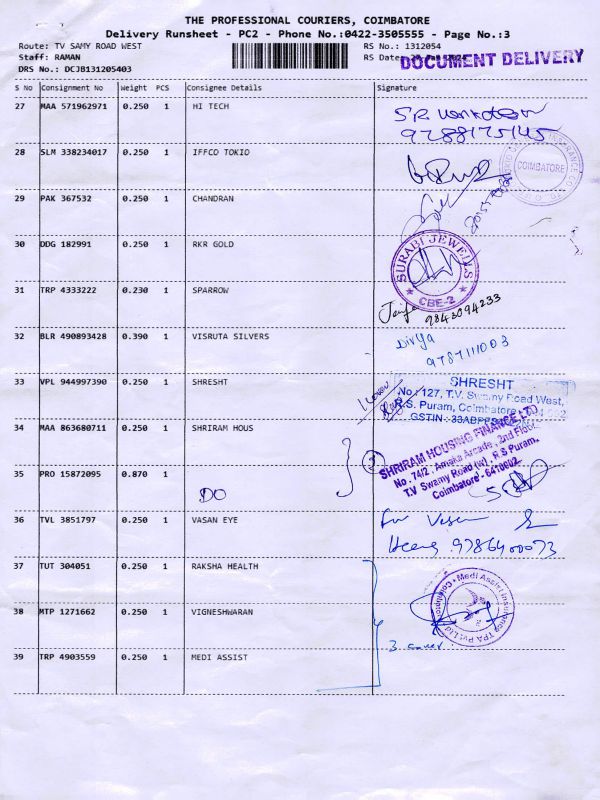 THE PROFESSIONAL COURIERS, COIMBATORE
Delivery Runsheet - PC2 - Phone No.:0422-3505555 - Page No.:3
Route: TV SAMY ROAD WEST RS No.: 1312054
Staff: RAMAN RS Date:
DRS No.: DCJB131205403
DOCUMENT DELIVERY
S No Consignment No Weight PCS Consignee Details Signature
27 MAA 571962971 0.250 1 HI TECH
9788175145
28 SLM 338234017 0.250 1 IFFCO TOKIO
COIMBATORE
29 PAK 367532 0.250 1 CHANDRAN
30 DDG 182991 0.250 1 RKR GOLD
SURABI JEWELLS
CBE-2
31 TRP 4333222 0.230 1 SPARROW
9843094233
32 BLR 490893428 0.390 1 VISRUTA SILVERS
Divya
9787111003
33 VPL 944997390 0.250 1 SHRESHT
SHRESHT
No: 127, T.V. Swamy Road West,
R.S. Puram, Coimbatore
GSTIN
34 MAA 863680711 0.250 1 SHRIRAM HOUS
SHRIRAM HOUSING FINANCE LTD
No. 74/2, Amaka Arcade, 2nd Floor,
T.V Swamy Road (w), R.S Puram,
Coimbatore - 641002.
35 PRO 15872095 0.870 1
DO
36 TVL 3851797 0.250 1 VASAN EYE
For Vasan
9786400073
37 TUT 304051 0.250 1 RAKSHA HEALTH
Medi Assist Insurance TPA Pvt Ltd
38 MTP 1271662 0.250 1 VIGNESHWARAN
39 TRP 4903559 0.250 1 MEDI ASSIST